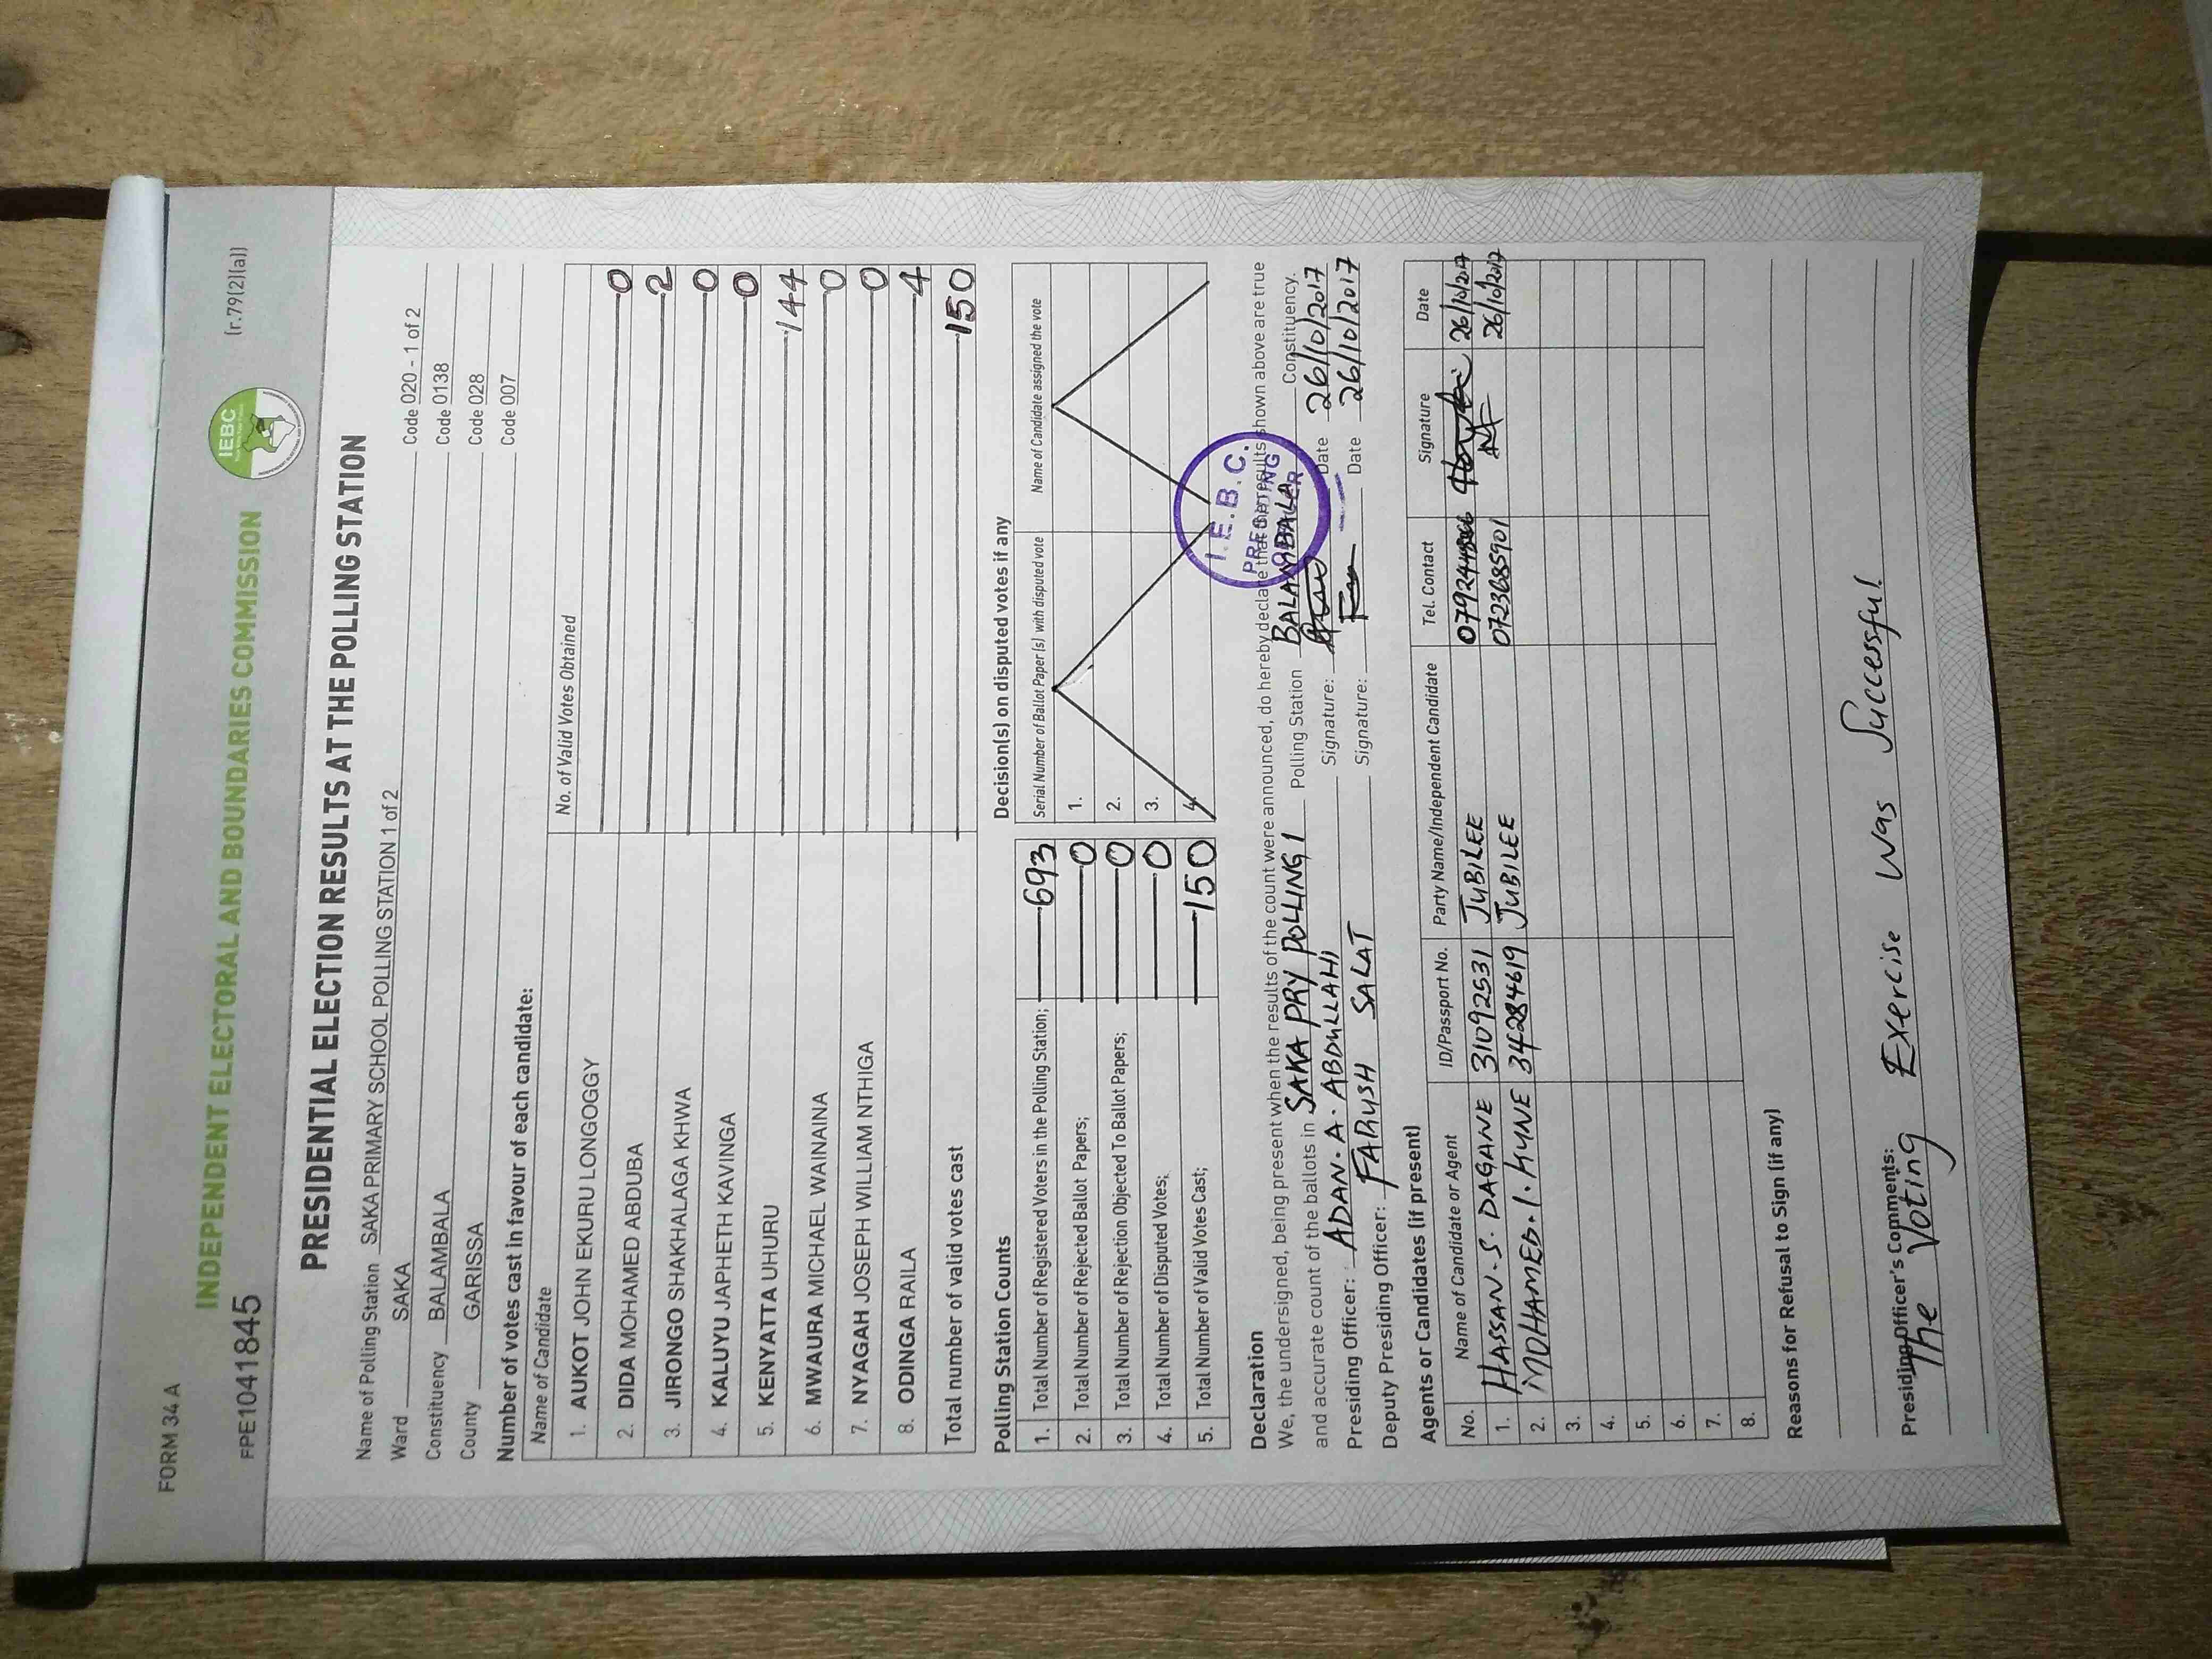 FORM 34 A
INDEPENDENT ELECTORAL AND BOUNDARIES COMMISSION
IEBC
(r.79(2)(a))
FPE1041845
PRESIDENTIAL ELECTION RESULTS AT THE POLLING STATION
Name of Polling Station SAKA PRIMARY SCHOOL POLLING STATION 1 of 2 Code 020 - 1 of 2
Ward SAKA Code 0138
Constituency BALAMBALA Code 028
County GARISSA Code 007
Number of votes cast in favour of each candidate:
Name of Candidate No. of Valid Votes Obtained
1. AUKOT JOHN EKURU LONGOGGY 0
2. DIDA MOHAMED ABDUBA 2
3. JIRONGO SHAKHALAGA KHWA 0
4. KALUYU JAPHETH KAVINGA 0
5. KENYATTA UHURU 144
6. MWAURA MICHAEL WAINAINA 0
7. NYAGAH JOSEPH WILLIAM NTHIGA 0
8. ODINGA RAILA 4
Total number of valid votes cast 150
Polling Station Counts
1. Total Number of Registered Voters in the Polling Station; 693
2. Total Number of Rejected Ballot Papers; 0
3. Total Number of Rejection Objected To Ballot Papers; 0
4. Total Number of Disputed Votes; 0
5. Total Number of Valid Votes Cast; 150
Decision(s) on disputed votes if any
Serial Number of Ballot Paper (s) with disputed vote Name of Candidate assigned the vote
1.
2.
3.
4.
Declaration
We, the undersigned, being present when the results of the count were announced, do hereby declare that the results shown above are true
and accurate count of the ballots in SAKA PRY POLLING 1 Polling Station BALAMBALA Constituency.
Presiding Officer: ADAN. A. ABDULLAHI Signature: Date 26/10/2017
Deputy Presiding Officer: FARUSH SALAT Signature: Date 26/10/2017
I.E.B.C.
PRESIDING
OFFICER
Agents or Candidates (if present)
No. Name of Candidate or Agent ID/Passport No. Party Name/Independent Candidate Tel. Contact Signature Date
1. HASSAN. S. DAGANE 31092531 JUBILEE 26/10/2017
2. MOHAMED. I. HUNE 34284619 JUBILEE 0723685901 26/10/2017
3.
4.
5.
6.
7.
8.
Reasons for Refusal to Sign (if any)
Presiding Officer's Comments:
The Voting Exercise Was Successful.